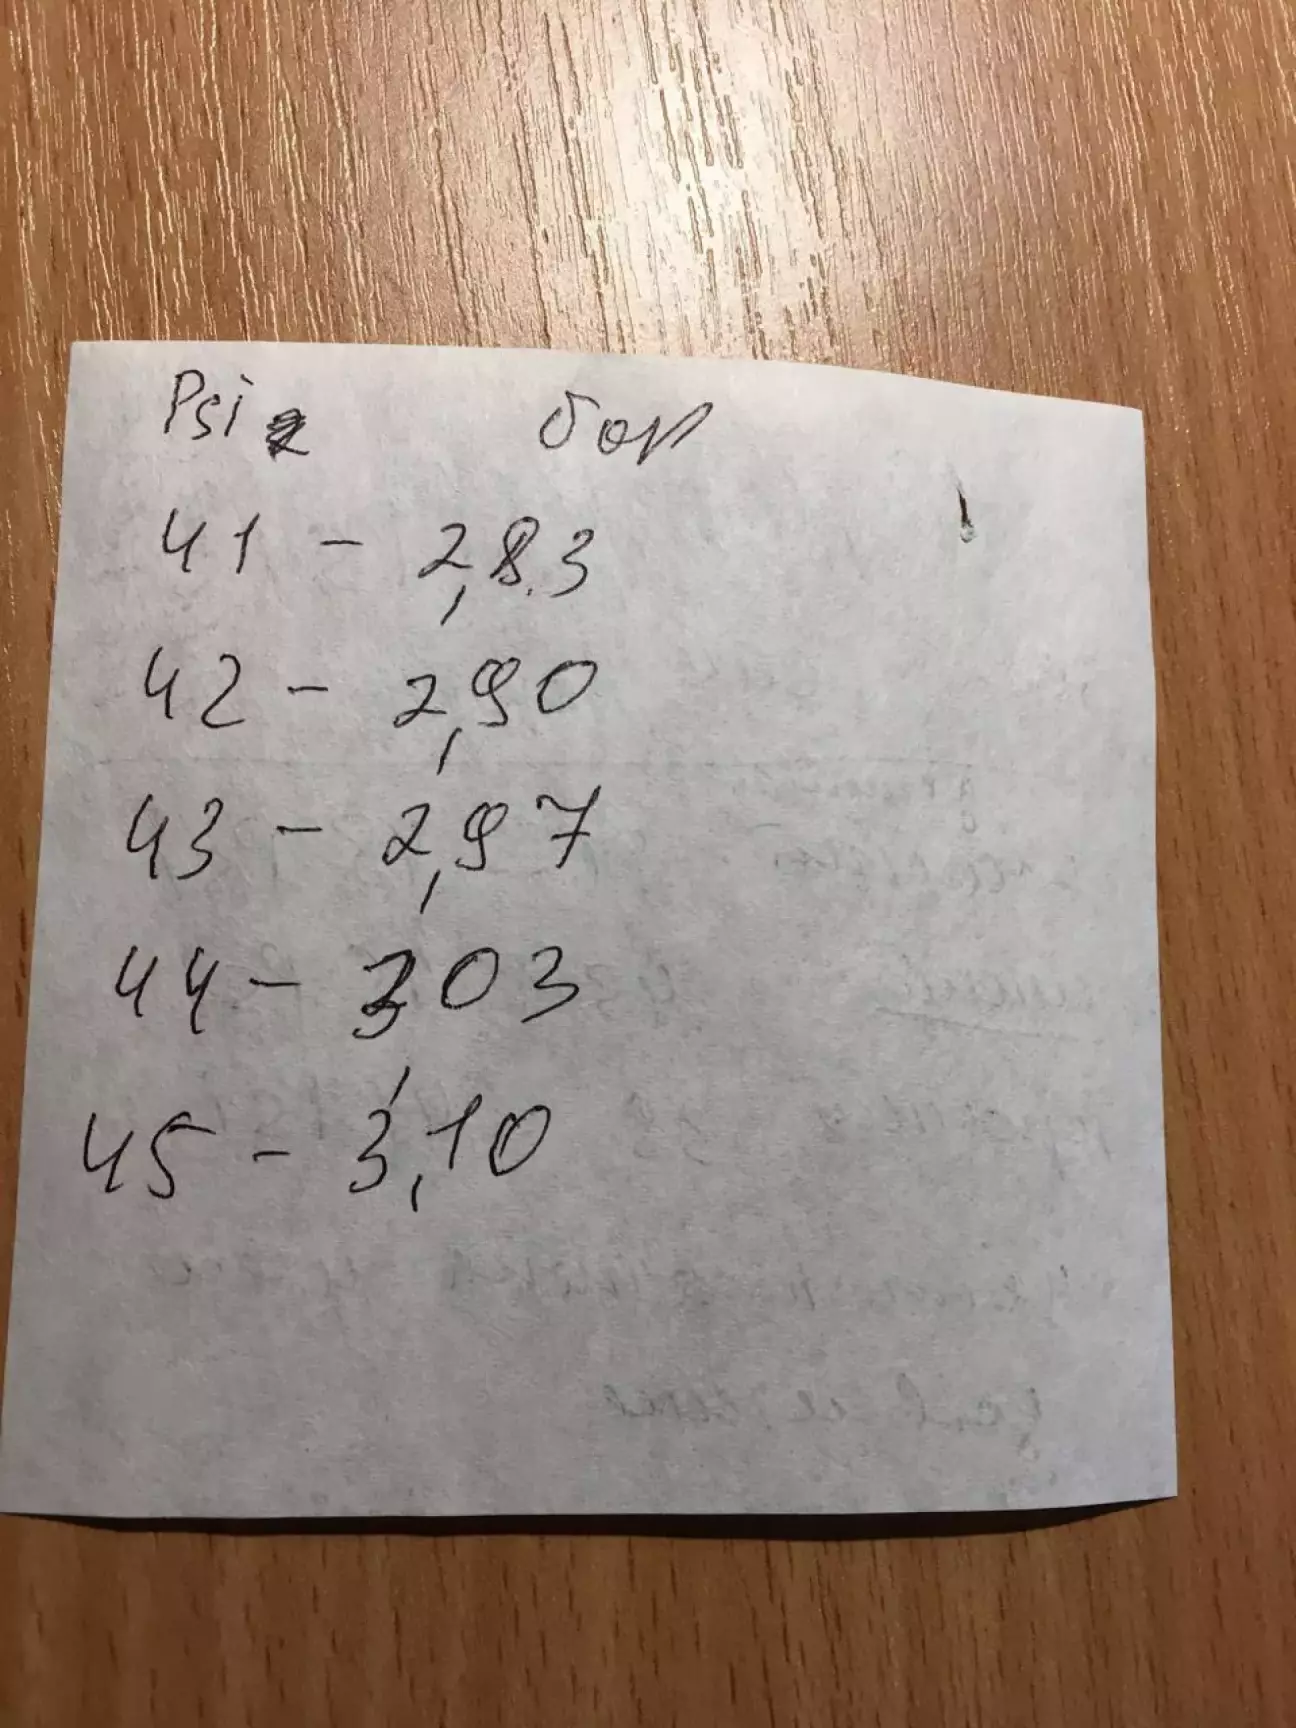 Psi бар
41 - 2,83
42 - 2,90
43 - 2,97
44 - 3,03
45 - 3,10